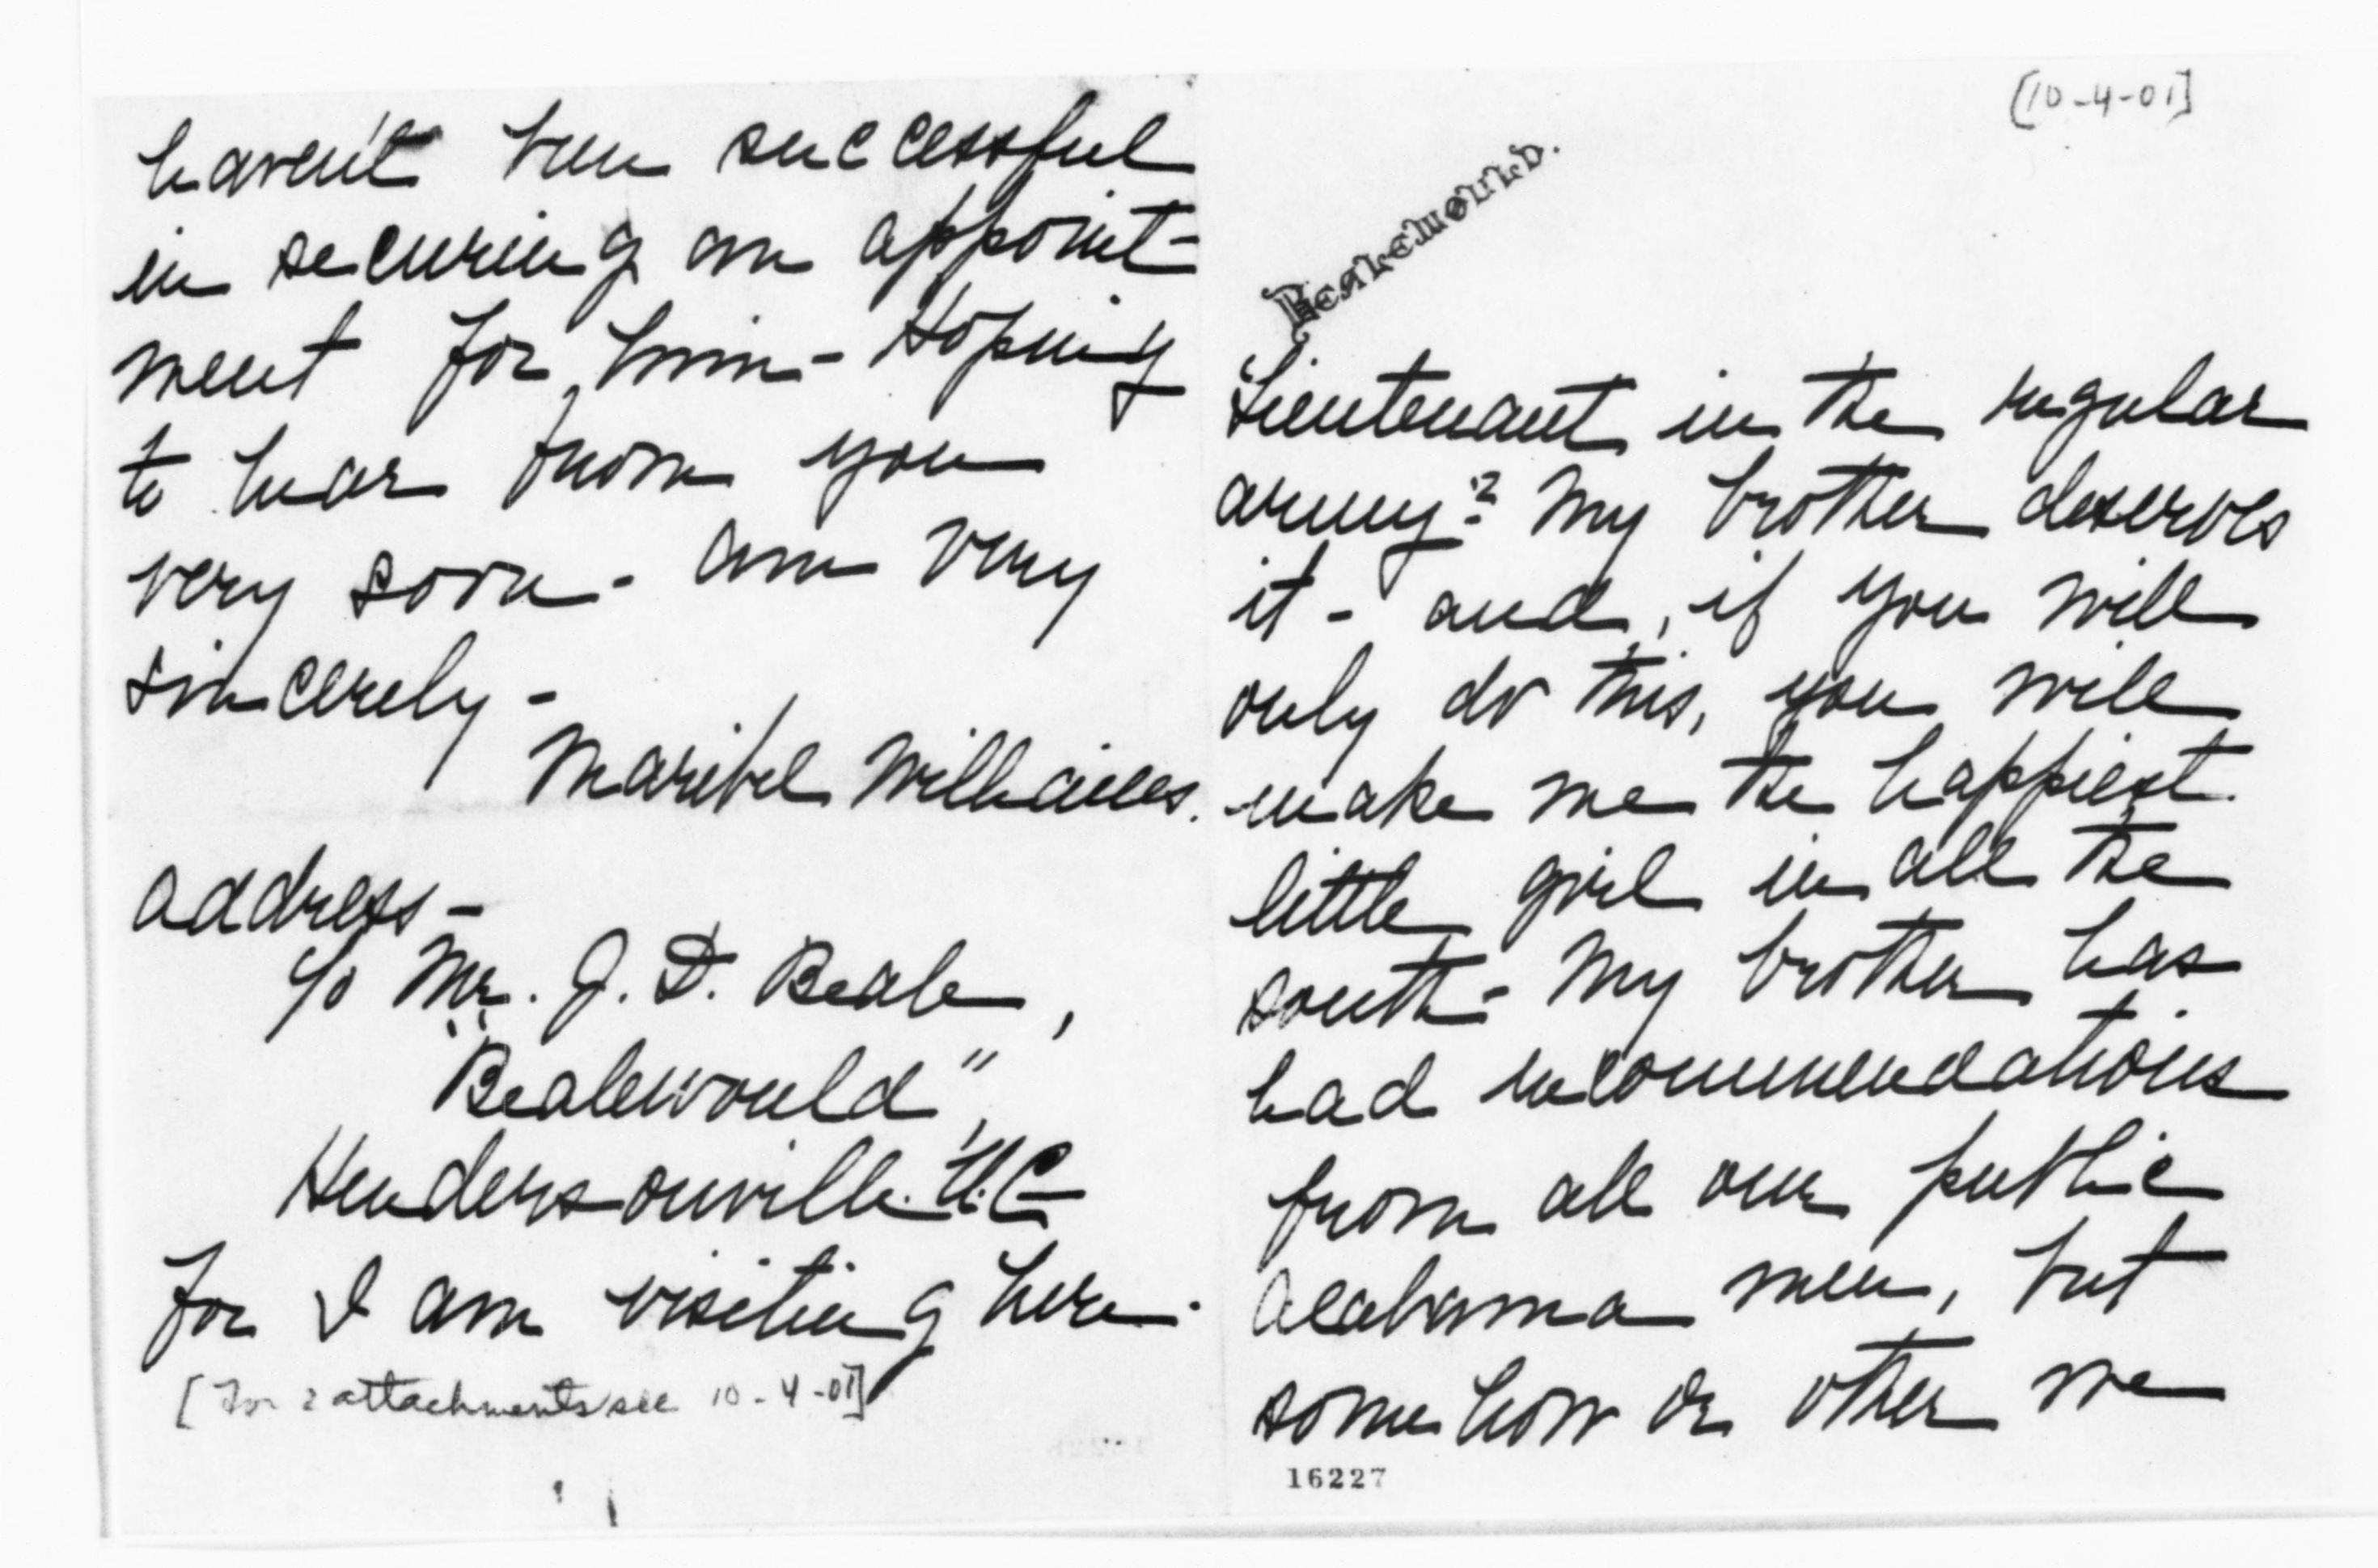 [10-4-01]
Bealewould.
Lieutenant in the regular
army? My brother deserves
it - and, if you will
only do this, you will
make me the happiest
little girl in all the
south - My brother has
had recommendations
from all our public
Alabama men, but
some how or other we
16227
haven't been successful
in securing an appoint-
ment for him - Hoping
to hear from you
very soon - am very
sincerely -
Maribel Williams.
Address -
c/o Mr. J. D. Beale,
"Bealewould"
Hendersonville. N.C.
for I am visiting here.
[For 2 attachments see 10-4-01]